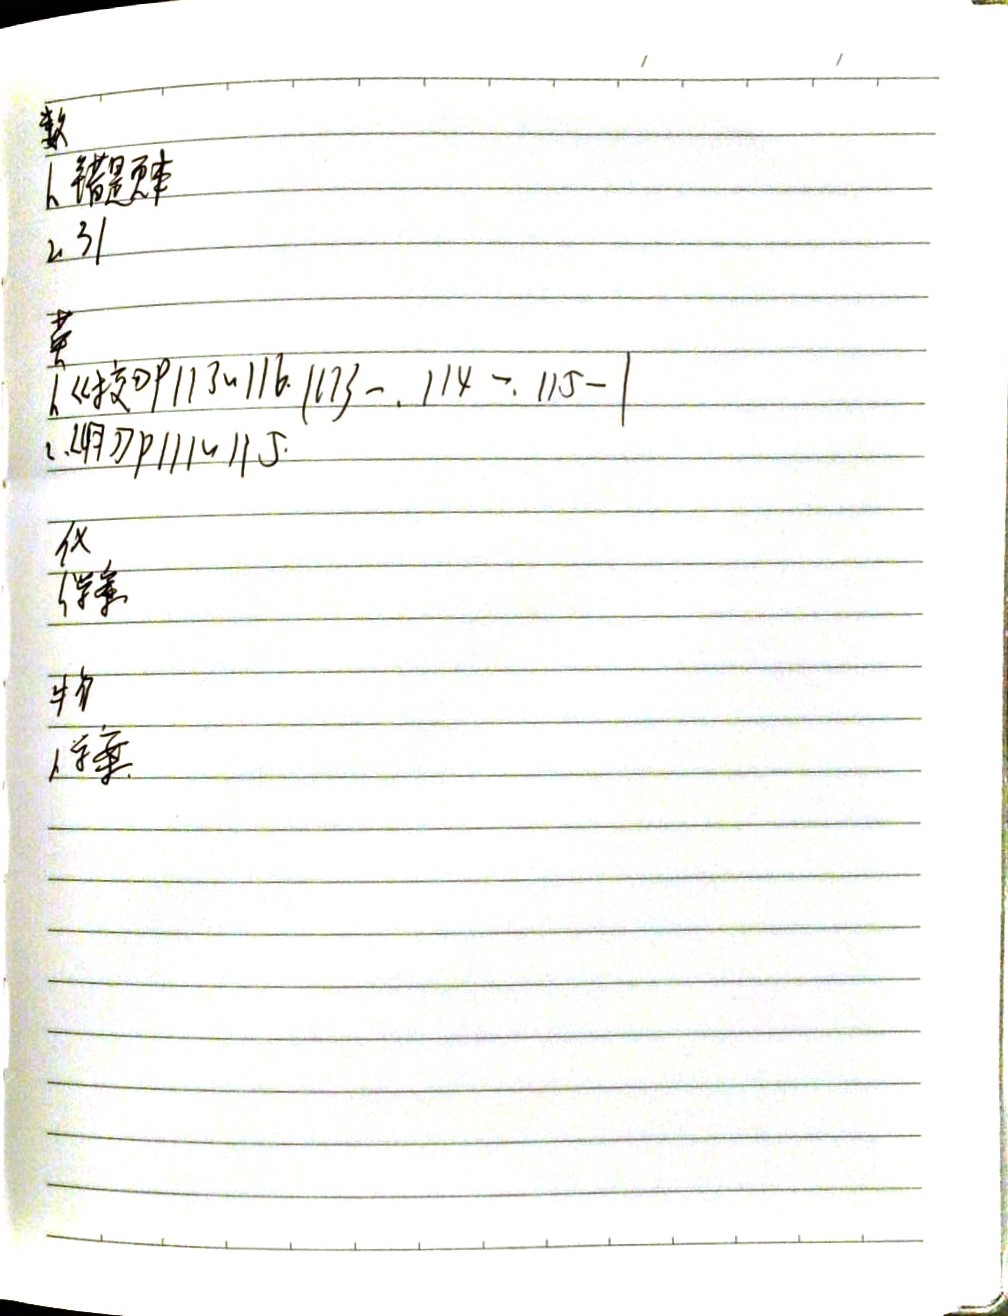 数
1. 错题本
2. 31
英
1.《校》P113~116. (113 一. 114 一. 115 一)
2.《用》P111~115.
化
1. 学案
物
1. 学案